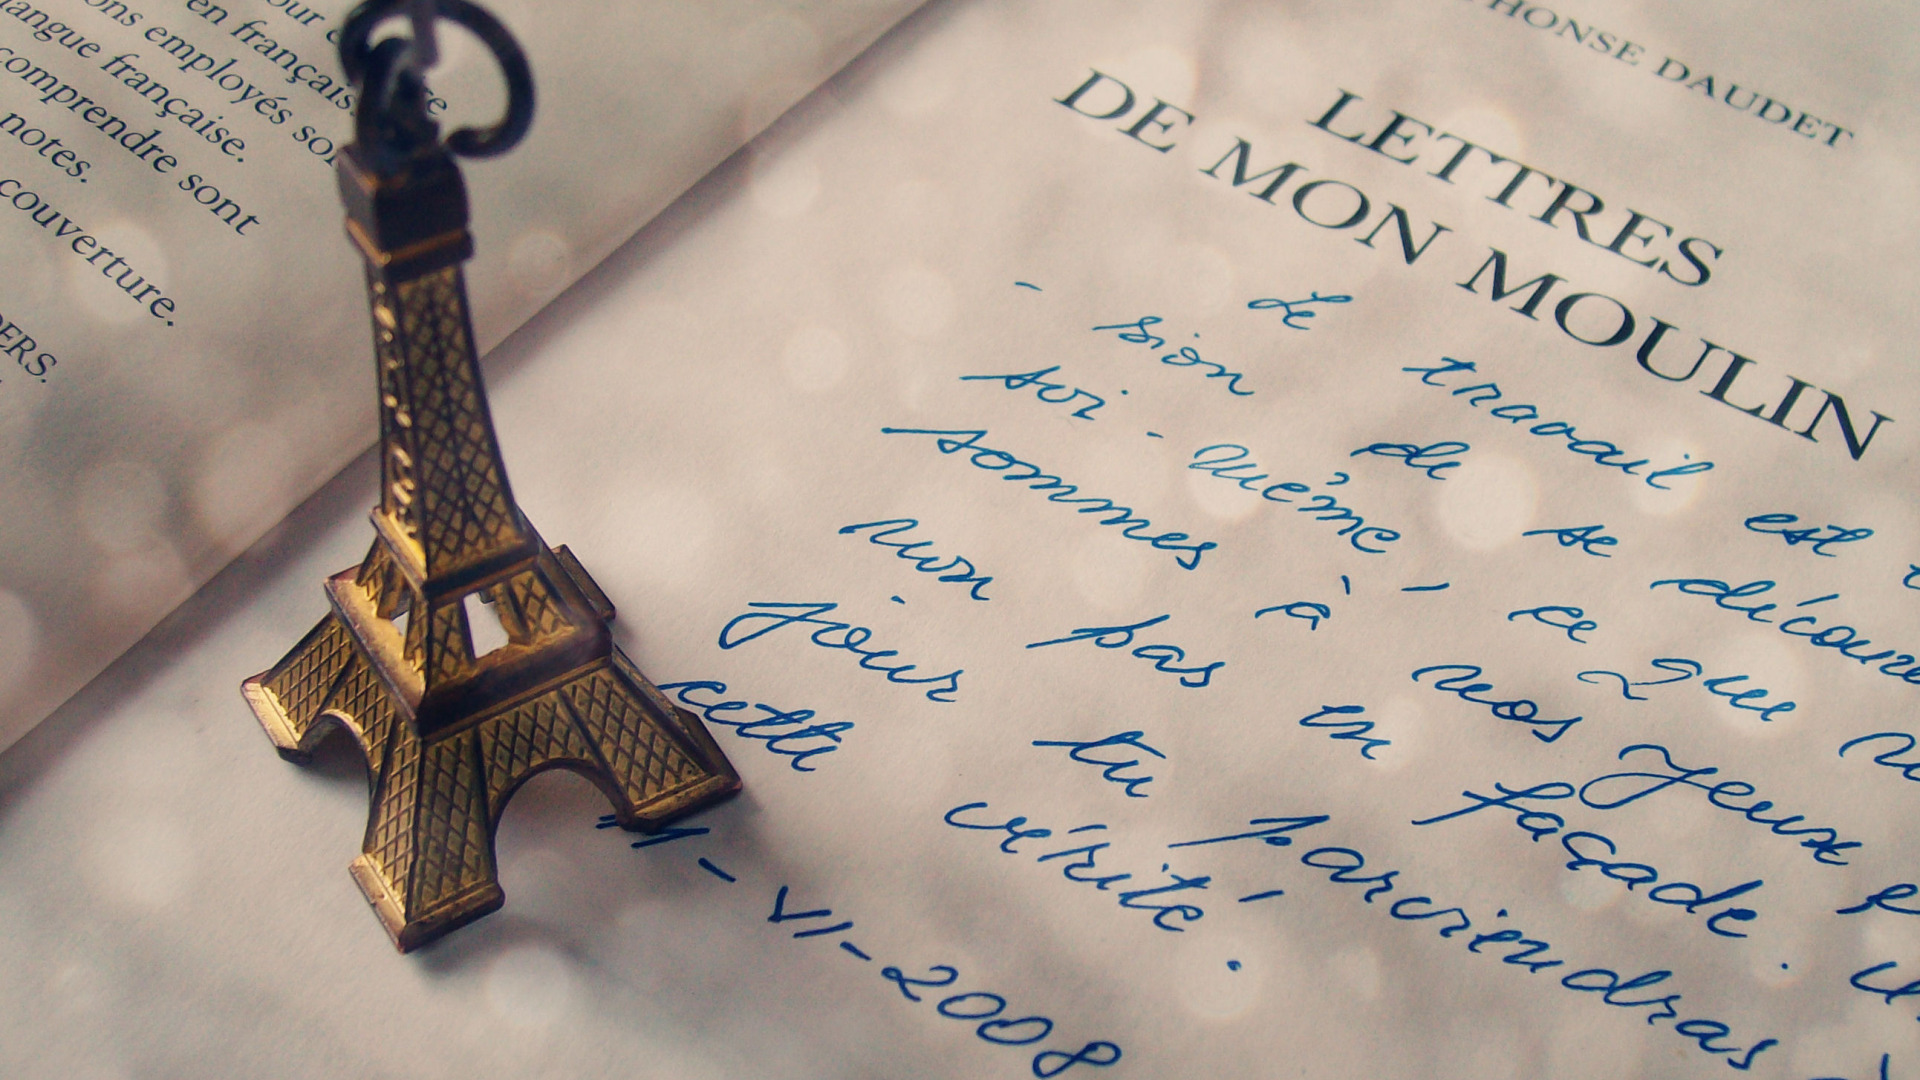 our
en français.
ons employés son
langue française.
comprendre sont
notes.
couverture.
DERS.
PHONSE DAUDET
LETTRES
DE MON MOULIN
Le travail est
- sion de se découvr
soi-même, ce que
sommes à nos yeux
non pas en façade.
jour tu parviendras
cette vérité.
-VI-2008